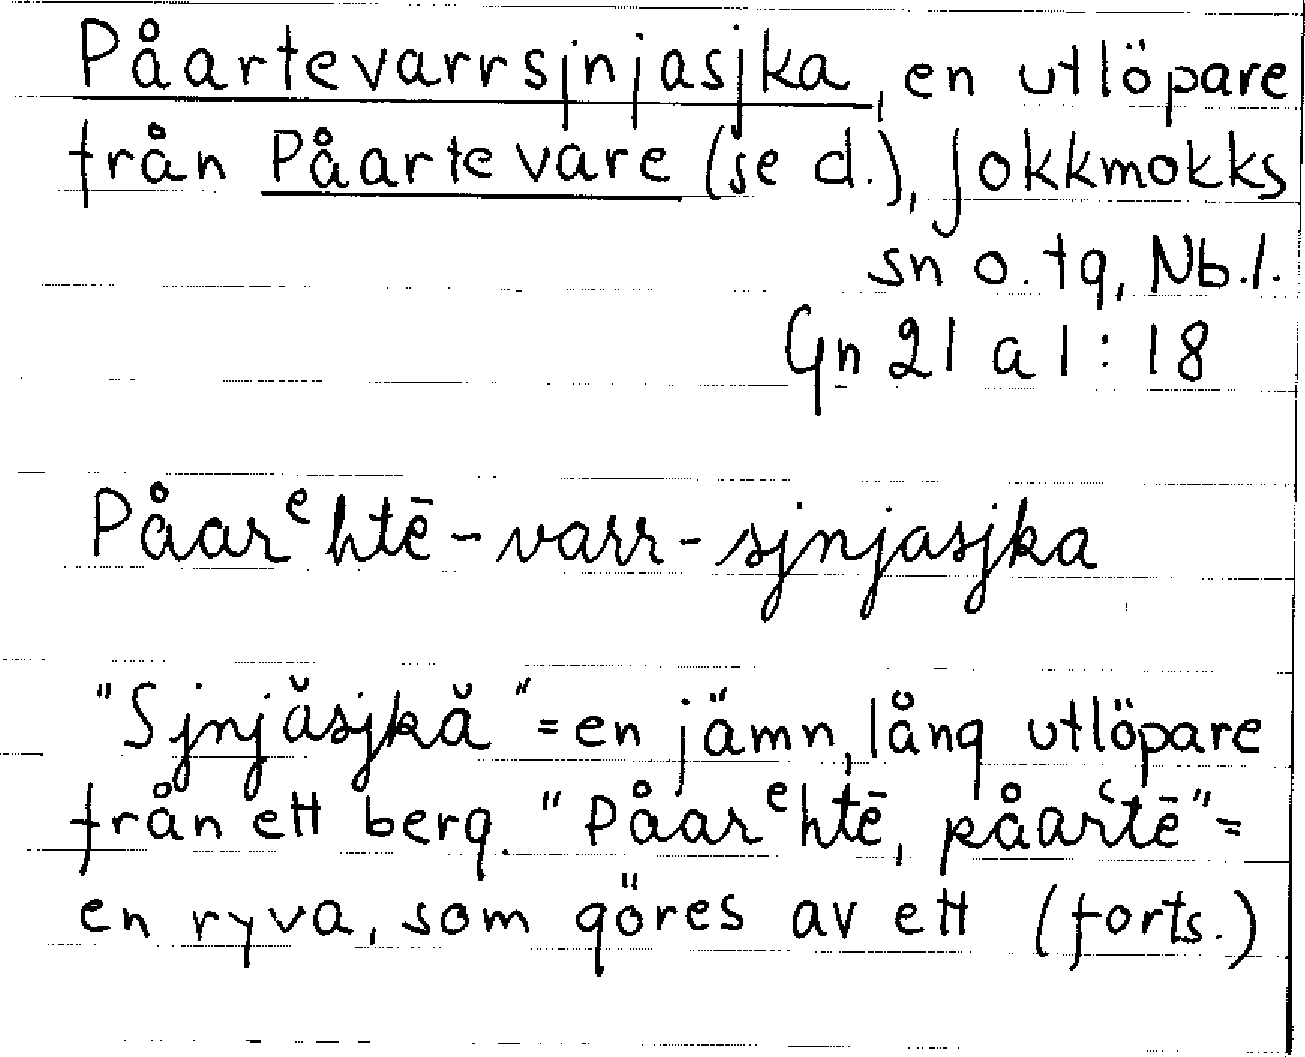 Påartevarrsjnjasjka, en utlöpare
från Påartevare (se d.), Jokkmokks
sn o. tg, Nb.l.
Gn 21 a 1 : 18
Påarᵉhtē-varr-sjnjasjka
"Sjnjăsjkă" = en jämn, lång utlöpare
från ett berg. "Påarᵉhtē, påar‘tē" =
en ryva, som göres av ett (forts.)